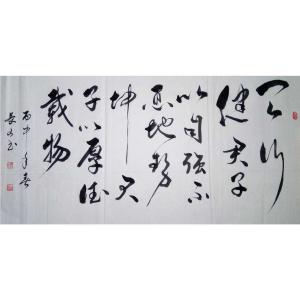 天行
健君子
以自强不
息地势
坤君
子以厚德
載物
丙申年春